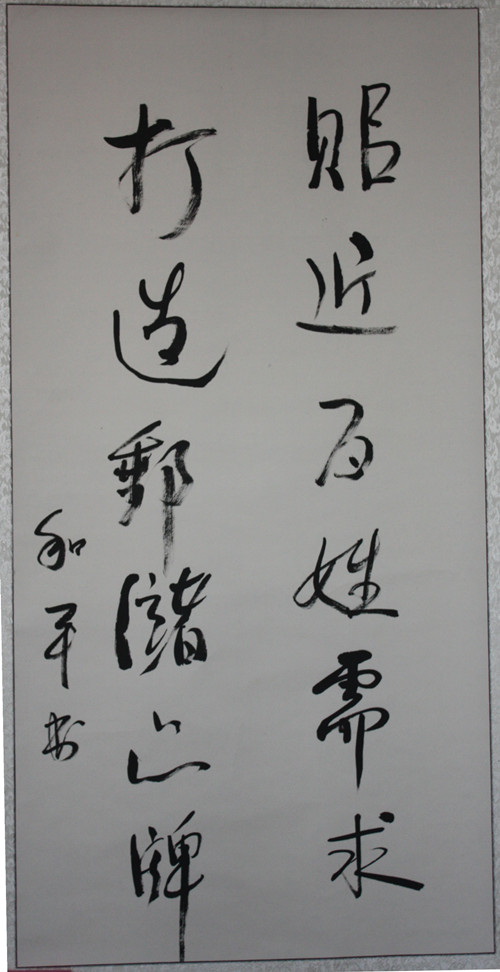 贴近百姓需求
打造郵儲品牌
和平书